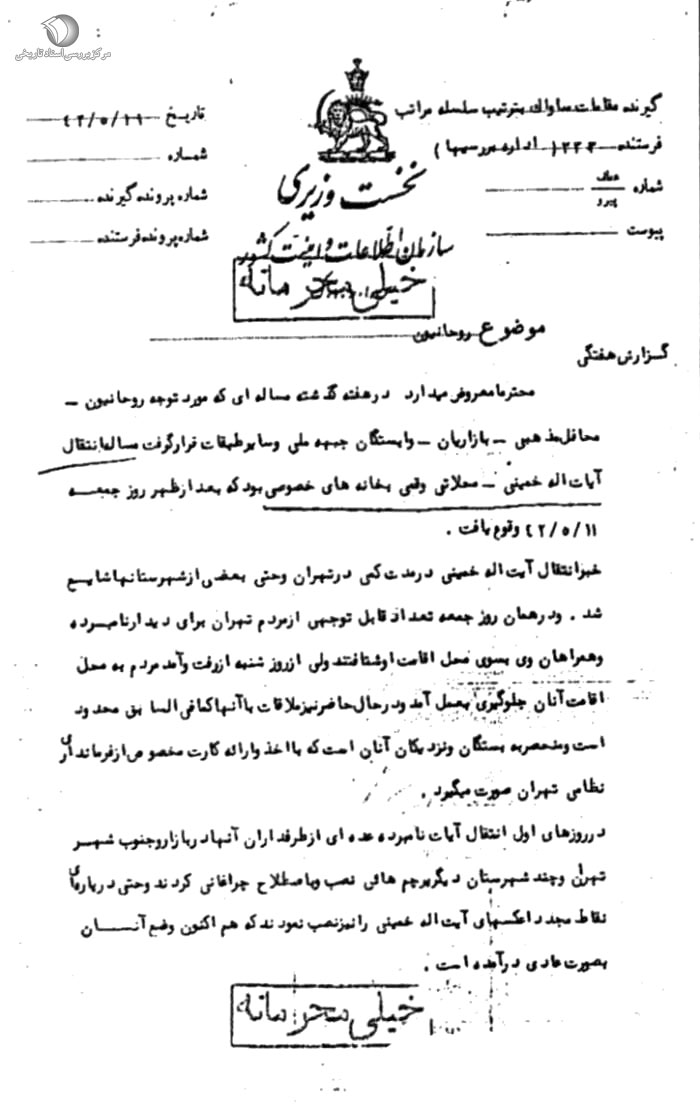 مرکز بررسی اسناد تاریخی
گیرنده مقامات ساواک بترتیب سلسله مراتب
فرستنده ۳۳۳ (اداره بررسیها)
شماره عطف
پیرو
پیوست
تاریخ
شماره
شماره پرونده گیرنده
شماره پرونده فرستنده
نخست وزیری
سازمان اطلاعات و امنیت کشور
خیلی محرمانه
موضوع روحانیون
گزارش هفتگی
محترما معروض میدارد در هفته گذشته مساله ای که مورد توجه روحانیون –
محافل مذهبی – بازاریان – وابستگان جبهه ملی وسایر طبقات قرار گرفت مساله انتقال
آیات اله خمینی – محلاتی وقمی بخانه های خصوصی بود که بعد از ظهر روز جمعه
۴۲/۵/۱۱ وقوع یافت .
خبر انتقال آیت اله خمینی در مدت کمی در تهران وحتی بعضی از شهرستانها شایع
شد . ودر همان روز جمعه تعداد قابل توجهی از مردم تهران برای دیدار نامبرده
وهمراهان وی بسوی محل اقامت او شتافتند ولی از روز شنبه از رفت وآمد مردم به محل
اقامت آنان جلوگیری بعمل آمد ودر حال حاضر نیز ملاقات با آنها کمافی السابق محدود
است ومنحصر به بستگان ونزدیکان آنان است که با اخذ وارائه کارت مخصوص از فرمانداری
نظامی تهران صورت میگیرد .
در روزهای اول انتقال آیات نامبرده عده ای از طرفداران آنها در بازار وجنوب شهر
تهران وچند شهرستان دیگر پرچم هائی نصب وباصطلاح چراغانی کردند وحتی در پاره‌ای
نقاط مجددا عکسهای آیت اله خمینی را نیز نصب نمودند که هم اکنون وضع آنان
بصورت عادی در آمده است .
خیلی محرمانه